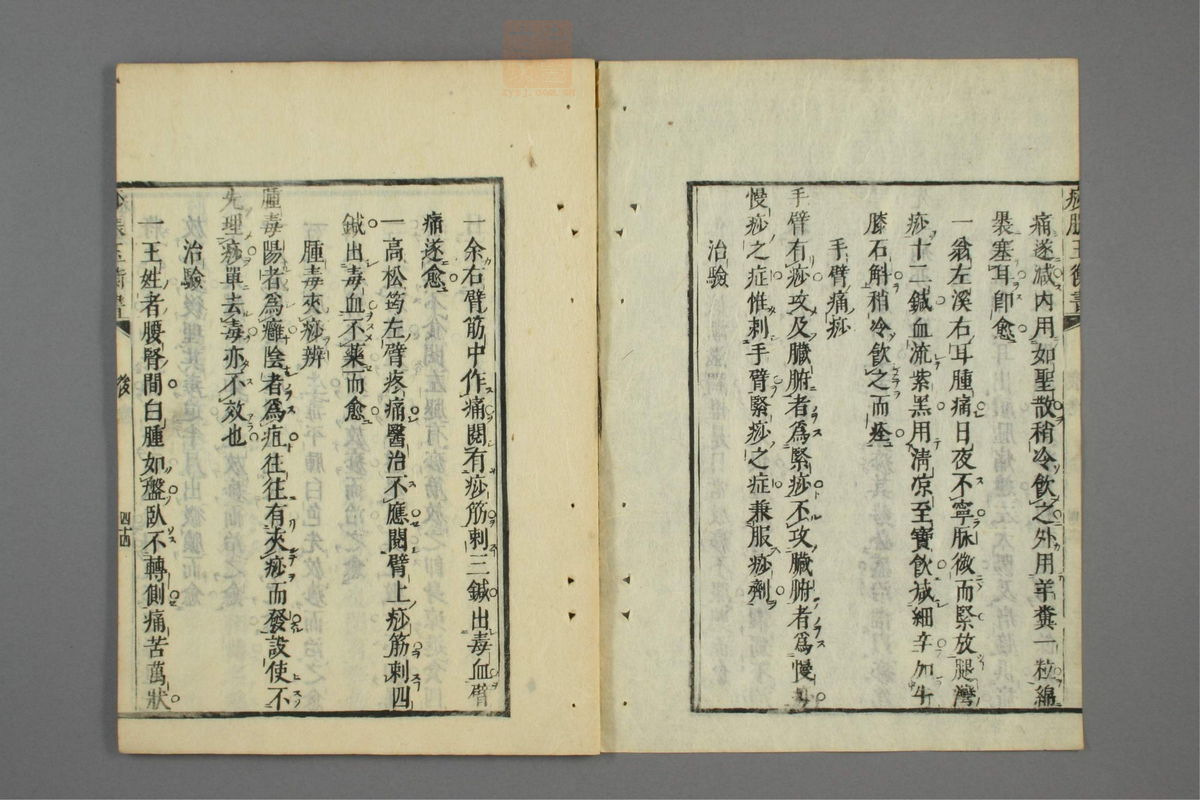 痧脹玉衡書
痛遂減內用如聖散稍冷飲之外用羊糞一粒綿
褁塞耳卽愈
一翁左溪右耳腫痛日夜不寧脉微而緊放腿灣
痧十二鍼血流紫黑用淸凉至寶飲減細辛加牛
膝石斛稍冷飲之而痊
手臂痛痧
手臂有痧攻及臟腑者爲緊痧不攻臟腑者爲慢痧
慢痧之症惟刺手臂緊痧之症兼服痧劑
治驗
一余右臂筋中作痛閱有痧筋刺三鍼出毒血臂
痛遂愈
一高松筠左臂疼痛醫治不應閱臂上痧筋刺四
鍼出毒血不藥而愈
腫毒夾痧辨
腫毒陽者爲癰陰者爲疽往往有夾痧而發設使不
先理痧單去毒亦不效也
治驗
一王姓者腰腎間白腫如盤臥不轉側痛苦萬狀
後
zysj.com.cn